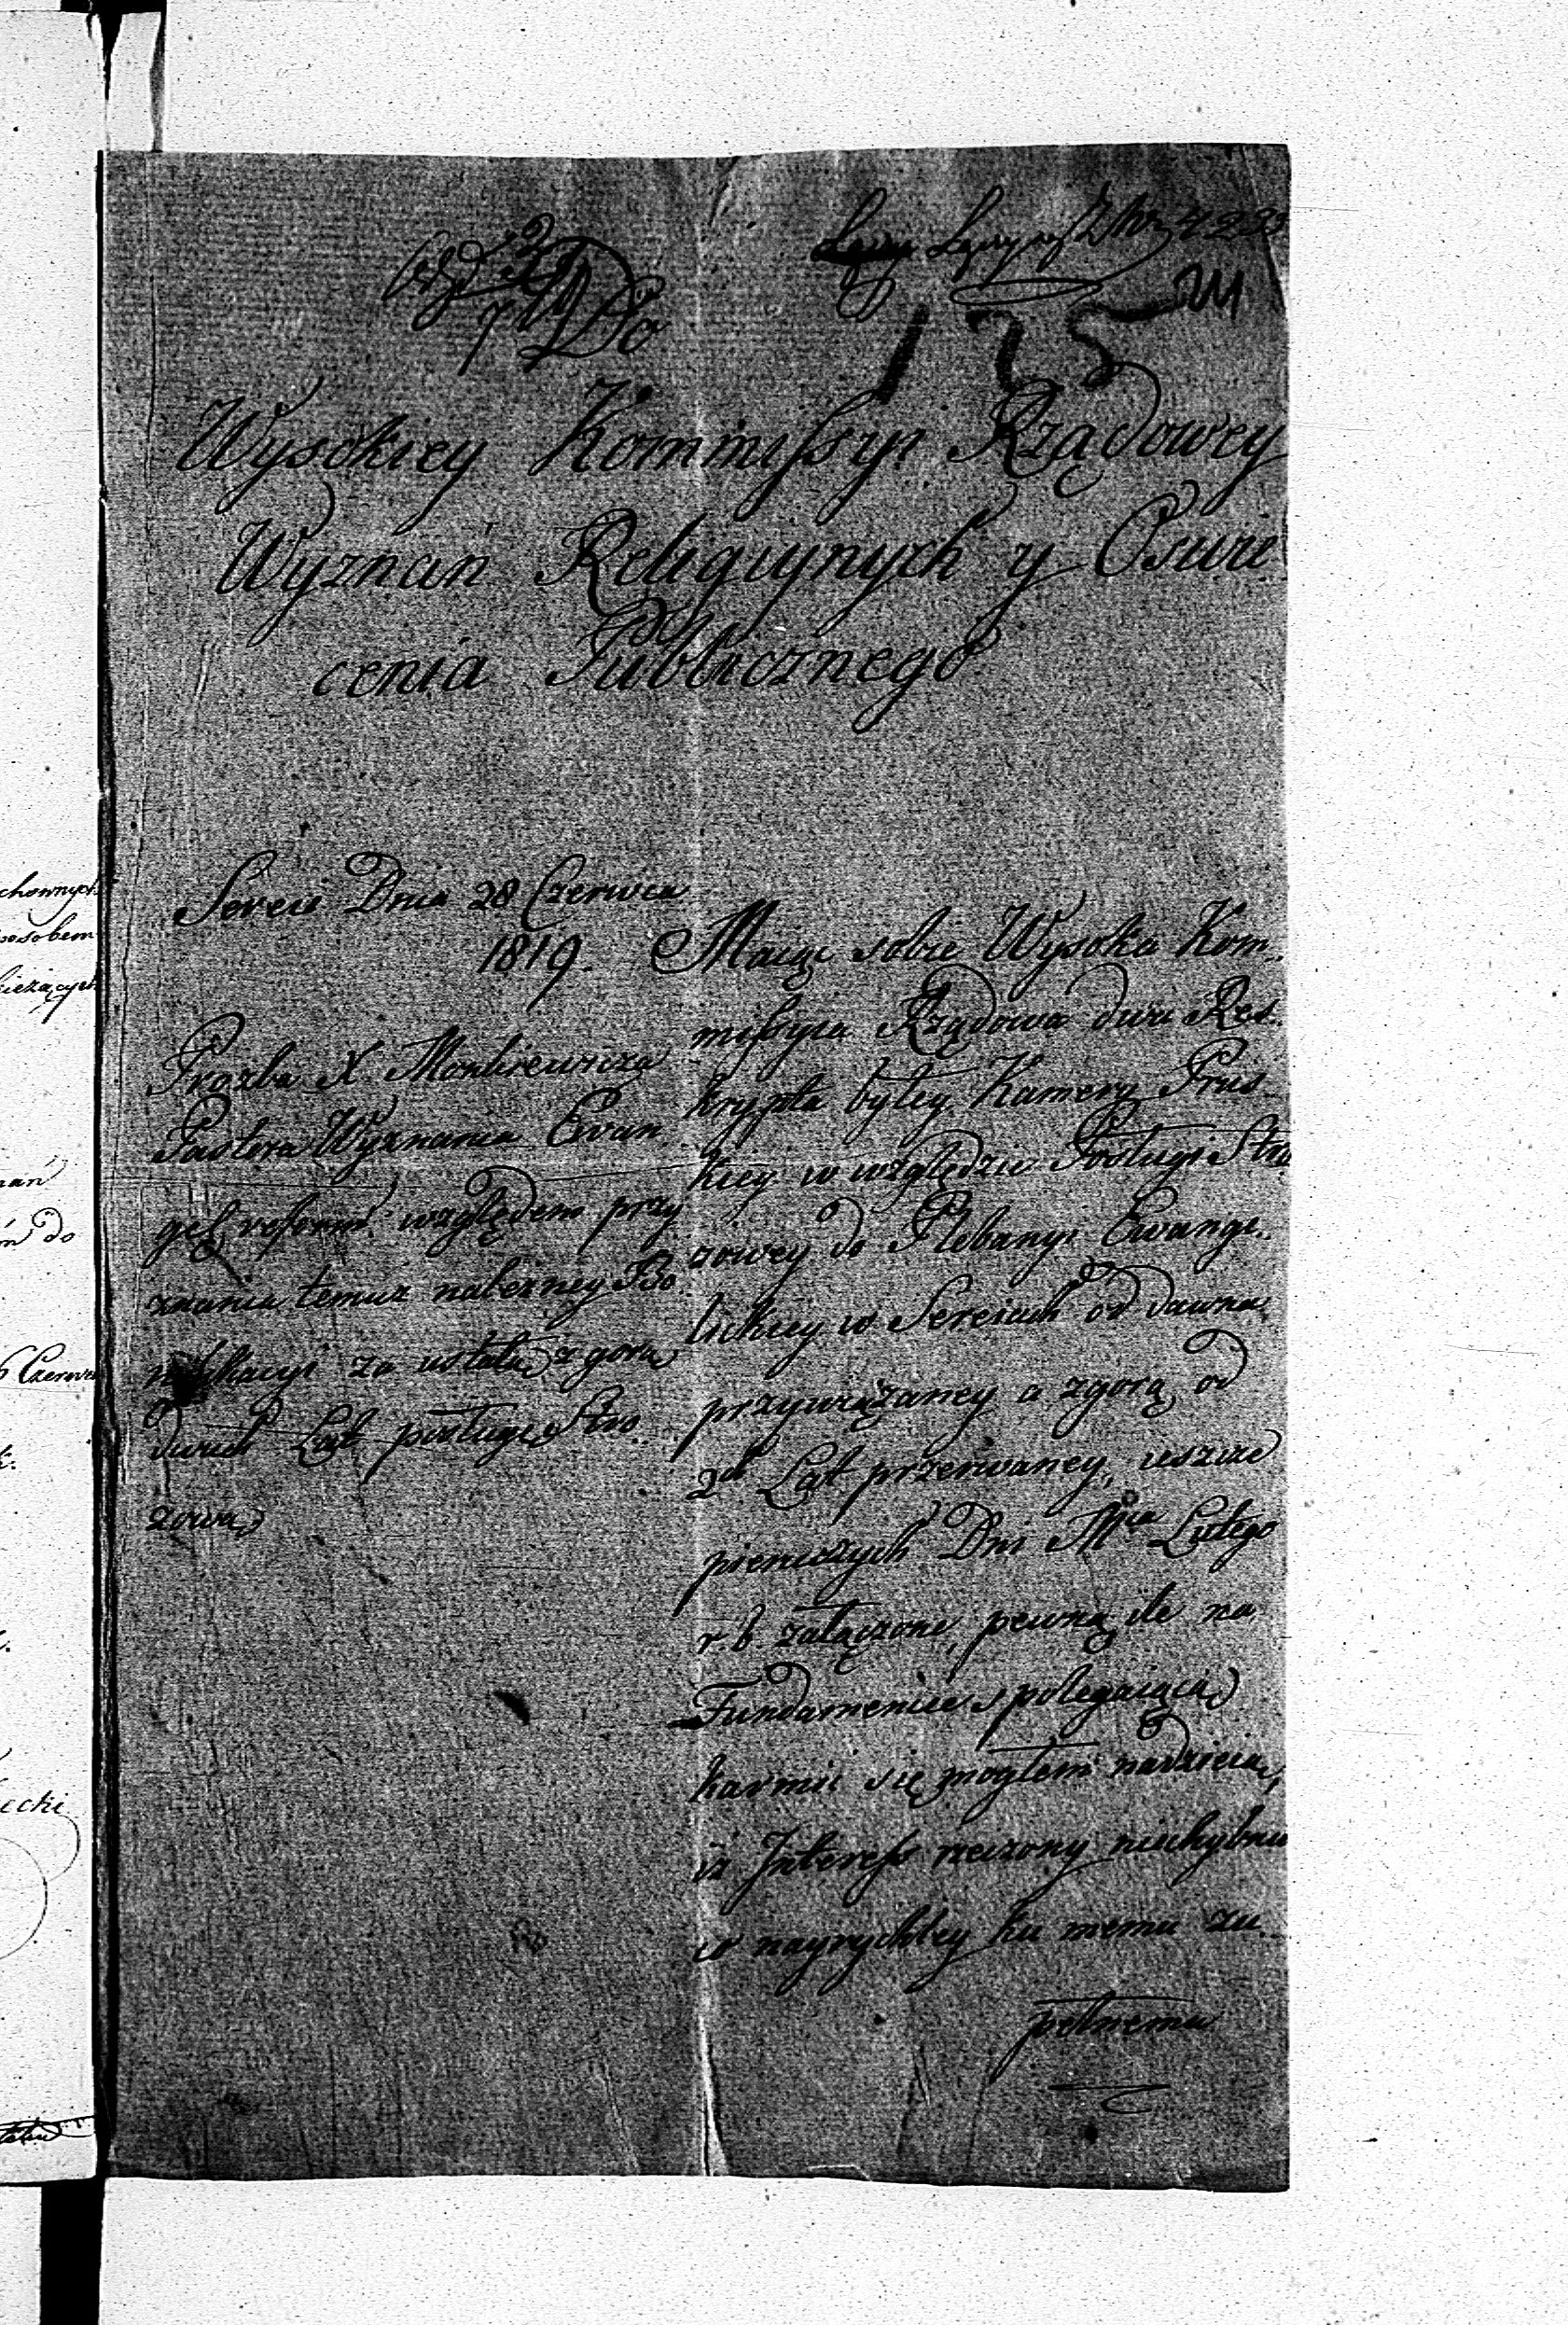 4233
175
Do
Wysokiey Kommissyi Rządowey
Wyznań Religiynych y Oswie
cenia Publicznego
Sereie Dnia 28 Czerwca
1819.
Prozba X. Monkiewicza
Pastora Wyznania Ewan
gel: reform: względem przy
znania temuz należney Bo
za ustałą z gorą
dwuch Lat posługę Stro
zową
Maiąc sobie Wysoka Kom-
missyia Rządowa dwa Res-
krypta byłey Kamery Prus-
kiey w względzie Posługi Stro
zowey do Plebanyi Ewange-
lickiey w Sereiach od dawna
przywiązaney a zgorą od
2ch Lat przerwaney, ieszcze
pierwszych Dni Mca Lutego
r. b. załączone, pewną ile na
Fundamencie polegaiącą
karmić się mogłem nadzieią,
iż Interess rzeczony niechybnie
w nayrychley ku memu zu-
pełnemu
chownych
posobem
bieżących
do
Czerwca
ecki